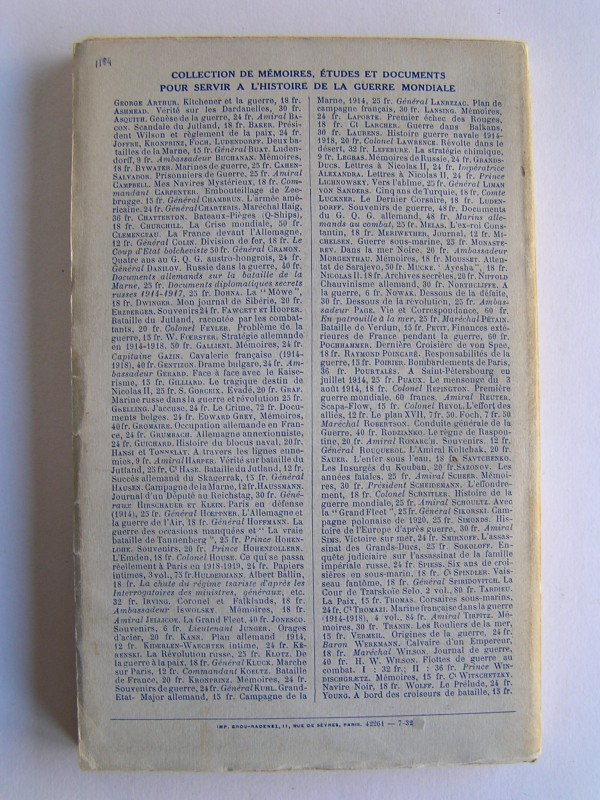 1184
COLLECTION DE MÉMOIRES, ÉTUDES ET DOCUMENTS
POUR SERVIR A L'HISTOIRE DE LA GUERRE MONDIALE
GEORGE ARTHUR. Kitchener et la guerre, 18 fr.
ASHMEAD. Vérité sur les Dardanelles, 30 fr.
ASQUITH. Genèse de la guerre, 24 fr. Amiral BA-
CON. Scandale du Jutland, 18 fr. BAKER. Prési-
dent Wilson et règlement de la paix, 24 fr.
JOFFRE, KRONPRINZ, FOCH, LUDENDORFF. Deux ba-
tailles de la Marne, 15 fr. Général BUAT. Luden-
dorff, 9 fr. Ambassadeur BUCHANAN. Mémoires,
18 fr. BYWATER. Marines de guerre, 25 fr. CAHEN-
SALVADOR. Prisonniers de Guerre, 25 fr. Amiral
CAMPBELL. Mes Navires Mystérieux, 18 fr. Com-
mandant CARPENTER. Embouteillage de Zee-
brugge, 15 fr. Général CHAMBRUN. L'armée amé-
ricaine, 24 fr. Général CHARTERIS. Maréchal Haig,
36 fr. CHATTERTON. Bateaux-Pièges (Q-Ships),
18 fr. CHURCHILL. La Crise mondiale, 50 fr.
CLEMENCEAU. La France devant l'Allemagne,
12 fr. Général COLIN. Division de fer, 18 fr. Le
Coup d'Etat bolcheviste 50 fr. Général CRAMON.
Quatre ans au G. Q. G. austro-hongrois, 24 fr.
Général DANILOV. Russie dans la guerre, 40 fr.
Documents allemands sur la bataille de la
Marne, 25 fr. Documents diplomatiques secrets
russes 1914-1917, 25 fr. DOHNA. La "Möwe",
18 fr. DWINGER. Mon journal de Sibérie, 20 fr.
ERZBERGER. Souvenirs 24 fr. FAWCETT et HOOPER.
Bataille du Jutland, racontée par les combat-
tants, 20 fr. Colonel FEYLER. Problème de la
guerre, 15 fr. W. FŒRSTER. Stratégie allemande
en 1914-1918, 50 fr. GALLIENI. Mémoires, 24 fr.
Capitaine GAZIN. Cavalerie française (1914-
1918), 40 fr. GENTIZON. Drame bulgare, 24 fr. Am-
bassadeur GERARD. Face à face avec le Kaise-
risme, 15 fr. GILLIARD. Le tragique destin de
Nicolas II, 25 fr. S. GORCEIX. Evadé, 20 fr. GRAF.
Marine russe dans la guerre et révolution 25 fr.
GRELLING. J'accuse, 24 fr. Le Crime, 72 fr. Docu-
ments belges. 24 fr. EDWARD GREY, Mémoires,
40 fr. GROMAIRE. Occupation allemande en Fran-
ce, 24 fr. GRUMBACH. Allemagne annexionniste,
24 fr. GUICHARD. Histoire du blocus naval, 20 fr.
HANSI et TONNELAT. A travers les lignes enne-
mies, 9 fr. Amiral HARPER. Vérité sur bataille du
Jutland, 25 fr. Ct HASE. Bataille du Jutland, 12 fr.
Succès allemand du Skagerrak, 15 fr. Général
HAUSEN. Campagne de la Marne, 12 fr. HAUSSMANN.
Journal d'un Député au Reichstag, 30 fr. Géné-
raux HIRSCHAUER et KLEIN. Paris en défense
(1914), 25 fr. Général HOEPPNER. L'Allemagne et
la guerre de l'Air, 18 fr. Général HOFFMANN. La
guerre des occasions manquées et "La vraie
bataille de Tannenberg", 25 fr. Prince HOHEN-
LOHE. Souvenirs, 20 fr. Prince HOHENZOLLERN.
L'Emden, 18 fr. Colonel HOUSE. Ce qui se passa
réellement à Paris en 1918-1919, 24 fr. Papiers
intimes, 3 vol., 75 fr. HULDERMANN. Albert Ballin,
18 fr. La chute du régime tsariste d'après les
Interrogatoires des ministres, généraux, etc.
32 fr. IRVING. Coronel et Falklands, 18 fr.
Ambassadeur ISWOLSKY. Mémoires, 18 fr.
Amiral JELLICOE. La Grand Fleet, 40 fr. JONESCO.
Souvenirs, 6 fr. Lieutenant JUNGER. Orages
d'acier, 20 fr. KANN. Plan allemand 1914,
12 fr. KIDERLEN-WAECHTER intime, 24 fr. KÉ-
RENSKI. La Révolution russe, 25 fr. KLOTZ. De
la guerre à la paix, 18 fr. Général KLUCK. Marche
sur Paris, 12 fr. Commandant KOELTZ. Bataille
de France, 20 fr. KRONPRINZ. Mémoires, 24 fr.
Souvenirs de guerre, 24 fr. Général KUHL. Grand-
Etat- Major allemand, 15 fr. Campagne de la
Marne, 1914, 25 fr. Général LANREZAC. Plan de
campagne français, 30 fr. LANSING. Mémoires,
24 fr. LAPORTE. Premier échec des Rouges,
18 fr. Ct LARCHER. Guerre dans Balkans,
30 fr. LAURENS. Histoire guerre navale 1914-
1918, 20 fr. Colonel LAWRENCE. Révolte dans le
désert, 32 fr. LEFEBURE. La stratégie chimique,
9 fr. LEGRAS. Mémoires de Russie, 24 fr. GRANDS-
DUCS. Lettres à Nicolas II, 24 fr. Impératrice
ALEXANDRA. Lettres à Nicolas II, 24 fr. Prince
LICHNOWSKY. Vers l'abîme, 25 fr. Général LIMAN
VON SANDERS. Cinq ans de Turquie, 18 fr. Comte
LUCKNER. Le Dernier Corsaire, 18 fr. LUDEN-
DORFF. Souvenirs de guerre, 48 fr. Documents
du G. Q. G. allemand, 48 fr. Marins alle-
mands au combat, 25 fr. MELAS. L'ex-roi Cons-
tantin, 18 fr. MERIWETHER, Journal, 12 fr. MI-
CHELSEN. Guerre sous-marine, 25 fr. MONASTE-
REV. Dans la mer Noire. 20 fr. Ambassadeur
MORGENTHAU. Mémoires, 18 fr. MOUSSET. Atten-
tat de Sarajevo, 50 fr. MUCKE. "Ayesha", 18 fr.
NICOLAS II. 18 fr. Archives secrètes, 20 fr. NIPPOLD
Chauvinisme allemand, 30 fr. NORTHCLIFFE. A
la guerre, 6 fr. NOWAK. Dessous de la défaite,
30 fr. Dessous de la révolution, 25 fr. Ambas-
sadeur PAGE. Vie et Correspondance, 60 fr.
En patrouille à la mer, 25 fr. Maréchal PÉTAIN.
Bataille de Verdun, 15 fr. PETIT. Finances exté-
rieures de France pendant la guerre, 60 fr.
POCHHAMMER. Dernière Croisière de von Spee,
18 fr. RAYMOND POINCARÉ. Responsabilités de la
guerre, 15 fr. POIRIER. Bombardements de Paris,
36 fr. POURTALÈS. A Saint-Pétersbourg en
juillet 1914, 25 fr. PUAUX. Le mensonge du 3
août 1914, 18 fr. Colonel REPINGTON. Première
guerre mondiale. 60 francs. Amiral REUTER.
Scapa-Flow, 15 fr. Colonel REVOL. L'effort des
alliés, 12 fr. Le plan XVII, 7 fr. 50. Foch, 7 fr. 50
Maréchal ROBERTSON. Conduite générale de la
Guerre, 40 fr. RODZIANKO. Le règne de Raspou-
tine, 20 fr. Amiral RONARC'H. Souvenirs. 12 fr.
Général ROUQUEROL. L'Amiral Koltchak, 20 fr.
SAUER. L'enfer sous l'eau, 18 fr. SAVTCHENKO.
Les Insurgés du Kouban, 20 fr. SAZONOV. Les
années fatales. 25 fr. Amiral SCHEER. Mémoi-
res, 30 fr. Président SCHEIDEMANN. L'effondre-
ment, 18 fr. Colonel SCHNITLER. Histoire de la
guerre mondiale, 25 fr. Amiral SCHOULTZ. Avec
la "Grand Fleet", 25 fr. Général SIKORSKI. Cam-
pagne polonaise de 1920, 25 fr. SIMONDS. His-
toire de l'Europe d'après guerre, 30 fr. Amiral
SIMS. Victoire sur mer, 24 fr. SMIRNOFF. L'assas-
sinat des Grands-Ducs, 25 fr. SOKOLOFF. En-
quête judiciaire sur l'assassinat de la famille
impériale russe, 24 fr. SPIESS. Six ans de croi-
sières en sous-marin, 18 fr. Ct SPINDLER. Vais-
seau fantôme, 18 fr. Général SPIRIDOVITCH. La
Cour de Tzarskoïe Selo, 2 vol., 80 fr. TARDIEU.
La Paix, 15 fr. THOMAS. Corsaires sous-marins,
24 fr. Ct THOMAZI. Marine française dans la guerre
(1914-1918), 4 vol., 84 fr. Amiral TIRPITZ. Mé-
moires, 30 fr. TRANIN. Les Rouliers de la mer,
15 fr. VERMEIL. Origines de la guerre, 24 fr.
Baron WERKMANN. Calvaire d'un Empereur,
18 fr. Maréchal WILSON. Journal de guerre,
40 fr. H. W. WILSON. Flottes de guerre au
combat. I : 32 fr.; II : 36 fr. Prince WIN-
DISCHGRŒTZ. Mémoires, 15 fr. Ct WITSCHETZKY.
Navire Noir, 18 fr. WOLFF. Le Prélude, 24 fr.
YOUNG. A bord des croiseurs de bataille, 15 fr.
IMP. BROU-RADENEZ, 11, RUE DE SÈVRES, PARIS. 42261 — 7-32